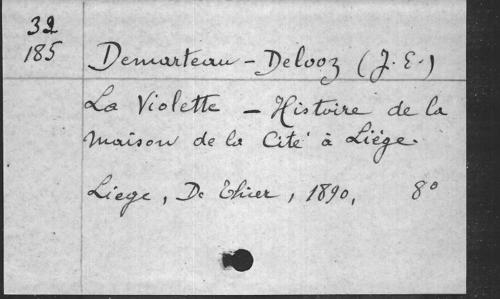 32
185
Demarteau - Delooz (J. E.)
La Violette - Histoire de la
maison de la Cité à Liége.
Liege, D. Thier, 1890, 8°